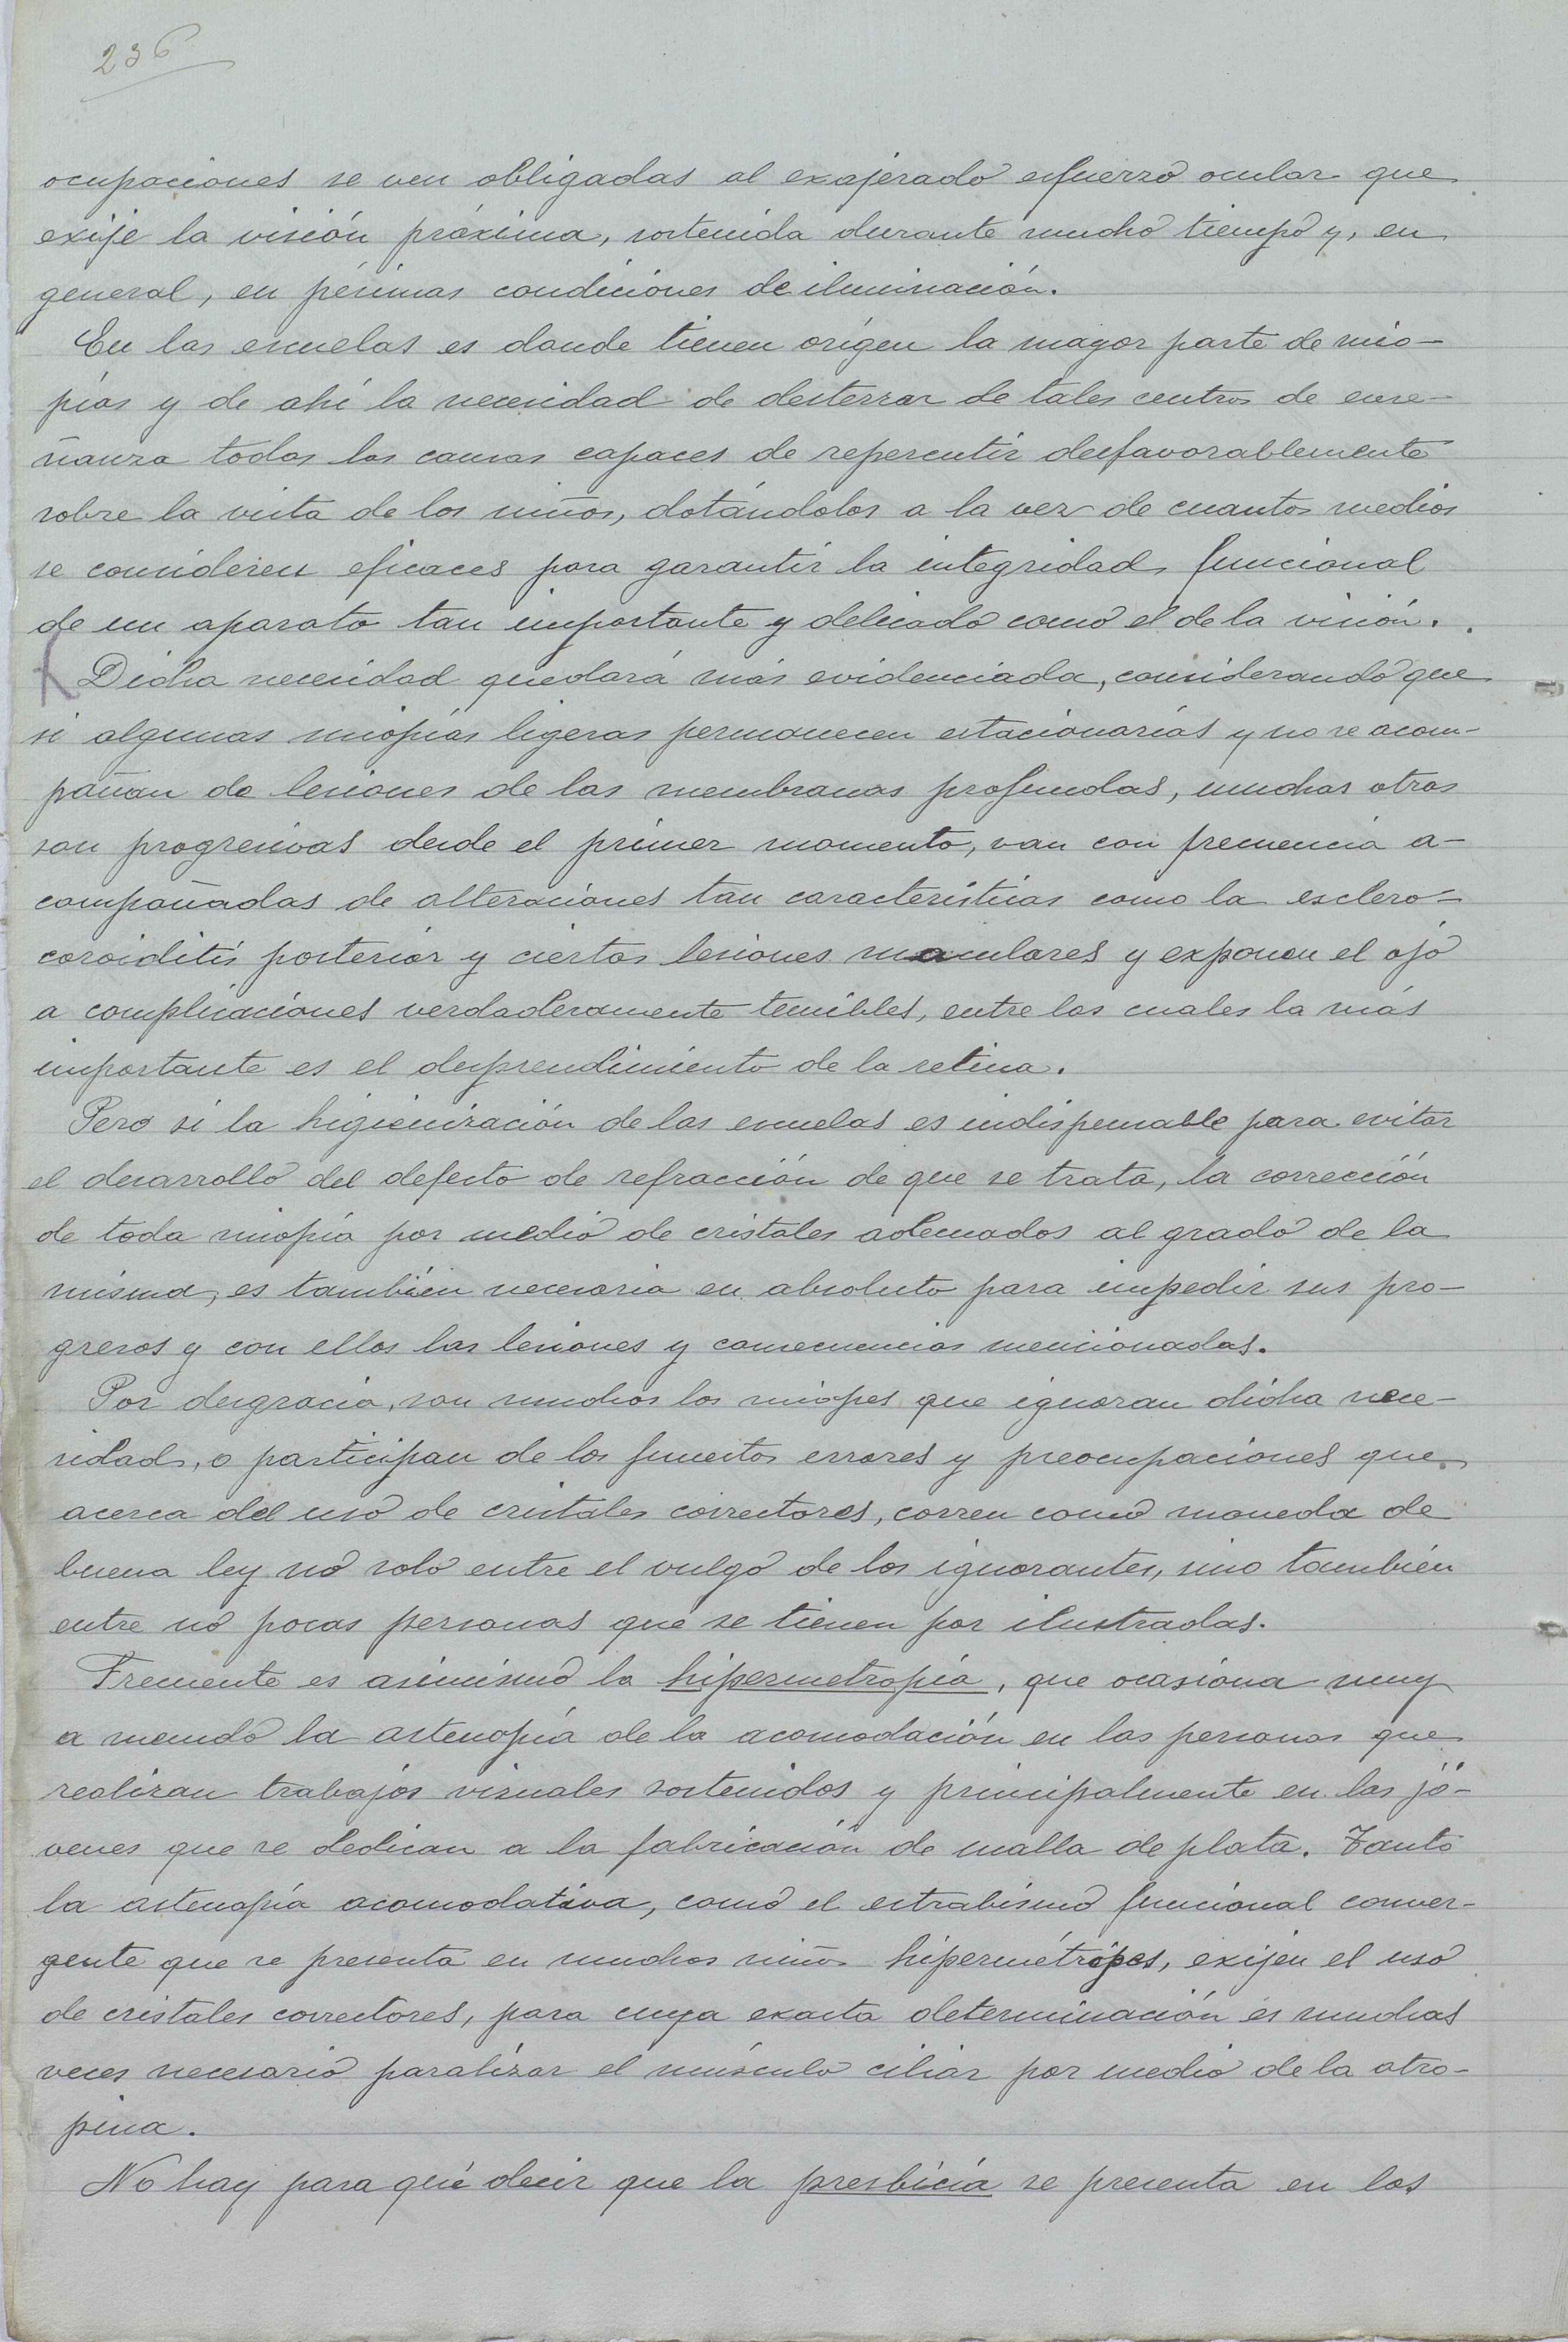 236
ocupaciones se ven obligadas al exajerado esfuerzo ocular que
exije la visión próxima, sostenida durante mucho tiempo y, en
general, en pésimas condiciones de iluminación.
En las escuelas es donde tienen orígen la mayor parte de mio-
pías y de ahí la necesidad de desterrar de tales centros de ense-
ñanza todas las causas capaces de repercutir desfavorablemente
sobre la vista de los niños, dotándolos a la vez de cuantos medios
se consideren eficaces para garantir la integridad funcional
de un aparato tan importante y delicado como el de la visión.
Dicha necesidad quedará más evidenciada, considerando que
si algunas miopías ligeras permanecen estacionarias y no se acom-
pañan de lesiones de las membranas profundas, muchas otras
son progresivas desde el primer momento, van con frecuencia a-
compañadas de alteraciones tan características como la esclero-
coroiditis posterior y ciertas lesiones maculares y exponen el ojo
a complicaciones verdaderamente temibles, entre las cuales la más
importante es el desprendimiento de la retina.
Pero si la higienización de las escuelas es indispensable para evitar
el desarrollo del defecto de refracción de que se trata, la corrección
de toda miopía por medio de cristales adecuados al grado de la
misma, es también necesaria en absoluto para impedir sus pro-
gresos y con ellos las lesiones y consecuencias mencionadas.
Por desgracia, son muchos los miopes que ignoran dicha nece-
sidad, o participan de los funestos errores y preocupaciones que
acerca del uso de cristales correctores, corren como moneda de
buena ley no solo entre el vulgo de los ignorantes, sino también
entre no pocas personas que se tienen por ilustradas.
Frecuente es asimismo la hipermetropía, que ocasiona muy
a menudo la astenopía de la acomodación en las personas que
realizan trabajos visuales sostenidos y principalmente en las jó-
venes que se dedican a la fabricación de malla de plata. Tanto
la astenopía acomodativa, como el estrabismo funcional conver-
gente que se presenta en muchos niños hipermétropes, exijen el uso
de cristales correctores, para cuya exacta determinación es muchas
veces necesario paralizar el músculo ciliar por medio de la atro-
pina.
No hay para qué decir que la presbicia se presenta en los